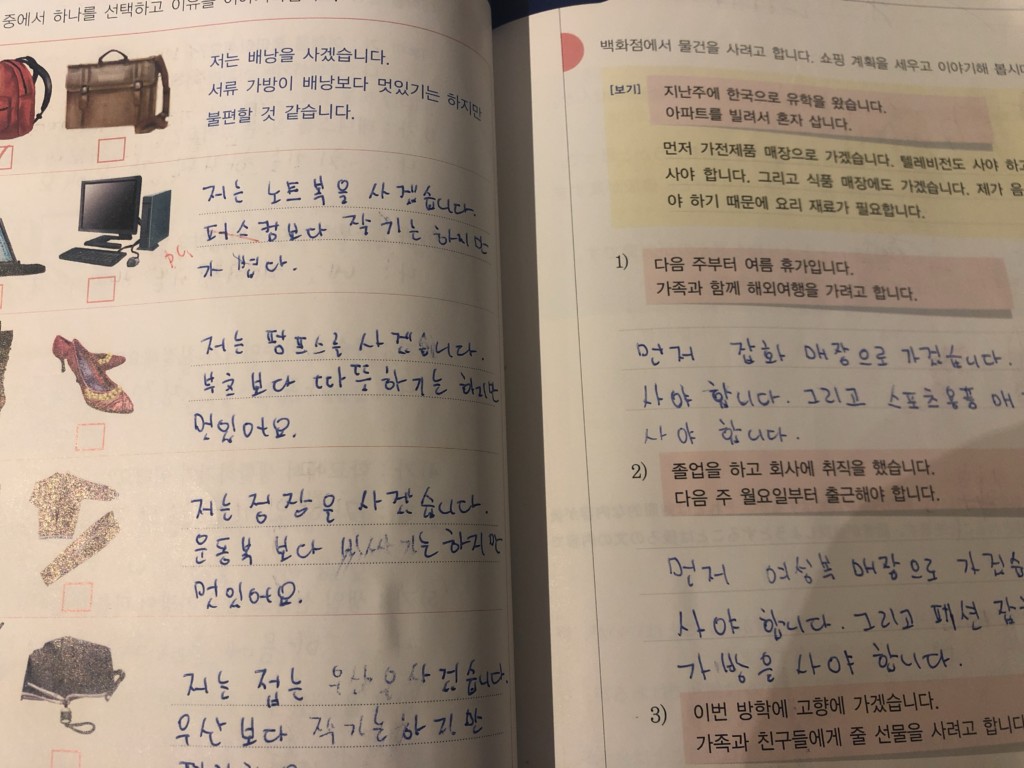 중에서 하나를 선택하고 이유를
저는 배낭을 사겠습니다.
서류 가방이 배낭보다 멋있기는 하지만
불편할 것 같습니다.
저는 노트북을 사겠습니다.
퍼스컴보다 작기는 하지만
가볍다.
저는 펌프스를 사겠습니다.
북츠보다 따뜻하기는 하지만
멋있어요.
저는 정장을 사겠습니다.
운동복 보다 비싸기는 하지만
멋있어요.
저는 접는 우산을 사겠습니다.
우산보다 작기는 하지만
백화점에서 물건을 사려고 합니다. 쇼핑 계획을 세우고 이야기해 봅시다
[보기]
지난주에 한국으로 유학을 왔습니다.
아파트를 빌려서 혼자 삽니다.
먼저 가전제품 매장으로 가겠습니다. 텔레비전도 사야 하고
사야 합니다. 그리고 식품 매장에도 가겠습니다. 제가 음
야 하기 때문에 요리 재료가 필요합니다.
1) 다음 주부터 여름 휴가입니다.
가족과 함께 해외여행을 가려고 합니다.
먼저 잡화 매장으로 가겠습니다.
사야 합니다. 그리고 스포츠용품 매
사야 합니다.
2) 졸업을 하고 회사에 취직을 했습니다.
다음 주 월요일부터 출근해야 합니다.
먼저 여성복 매장으로 가겠습
사야 합니다. 그리고 패션 잡
가방을 사야 합니다.
3) 이번 방학에 고향에 가겠습니다.
가족과 친구들에게 줄 선물을 사려고 합니다